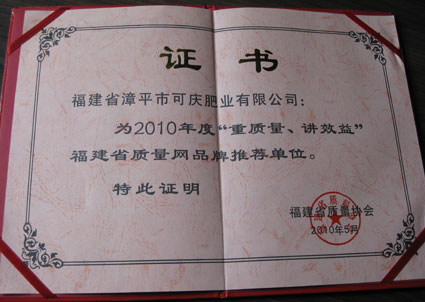 证书
福建省漳平市可庆肥业有限公司：
为2010年度“重质量、讲效益”
福建省质量网品牌推荐单位。
特此证明
福建省质量协会
2010年5月